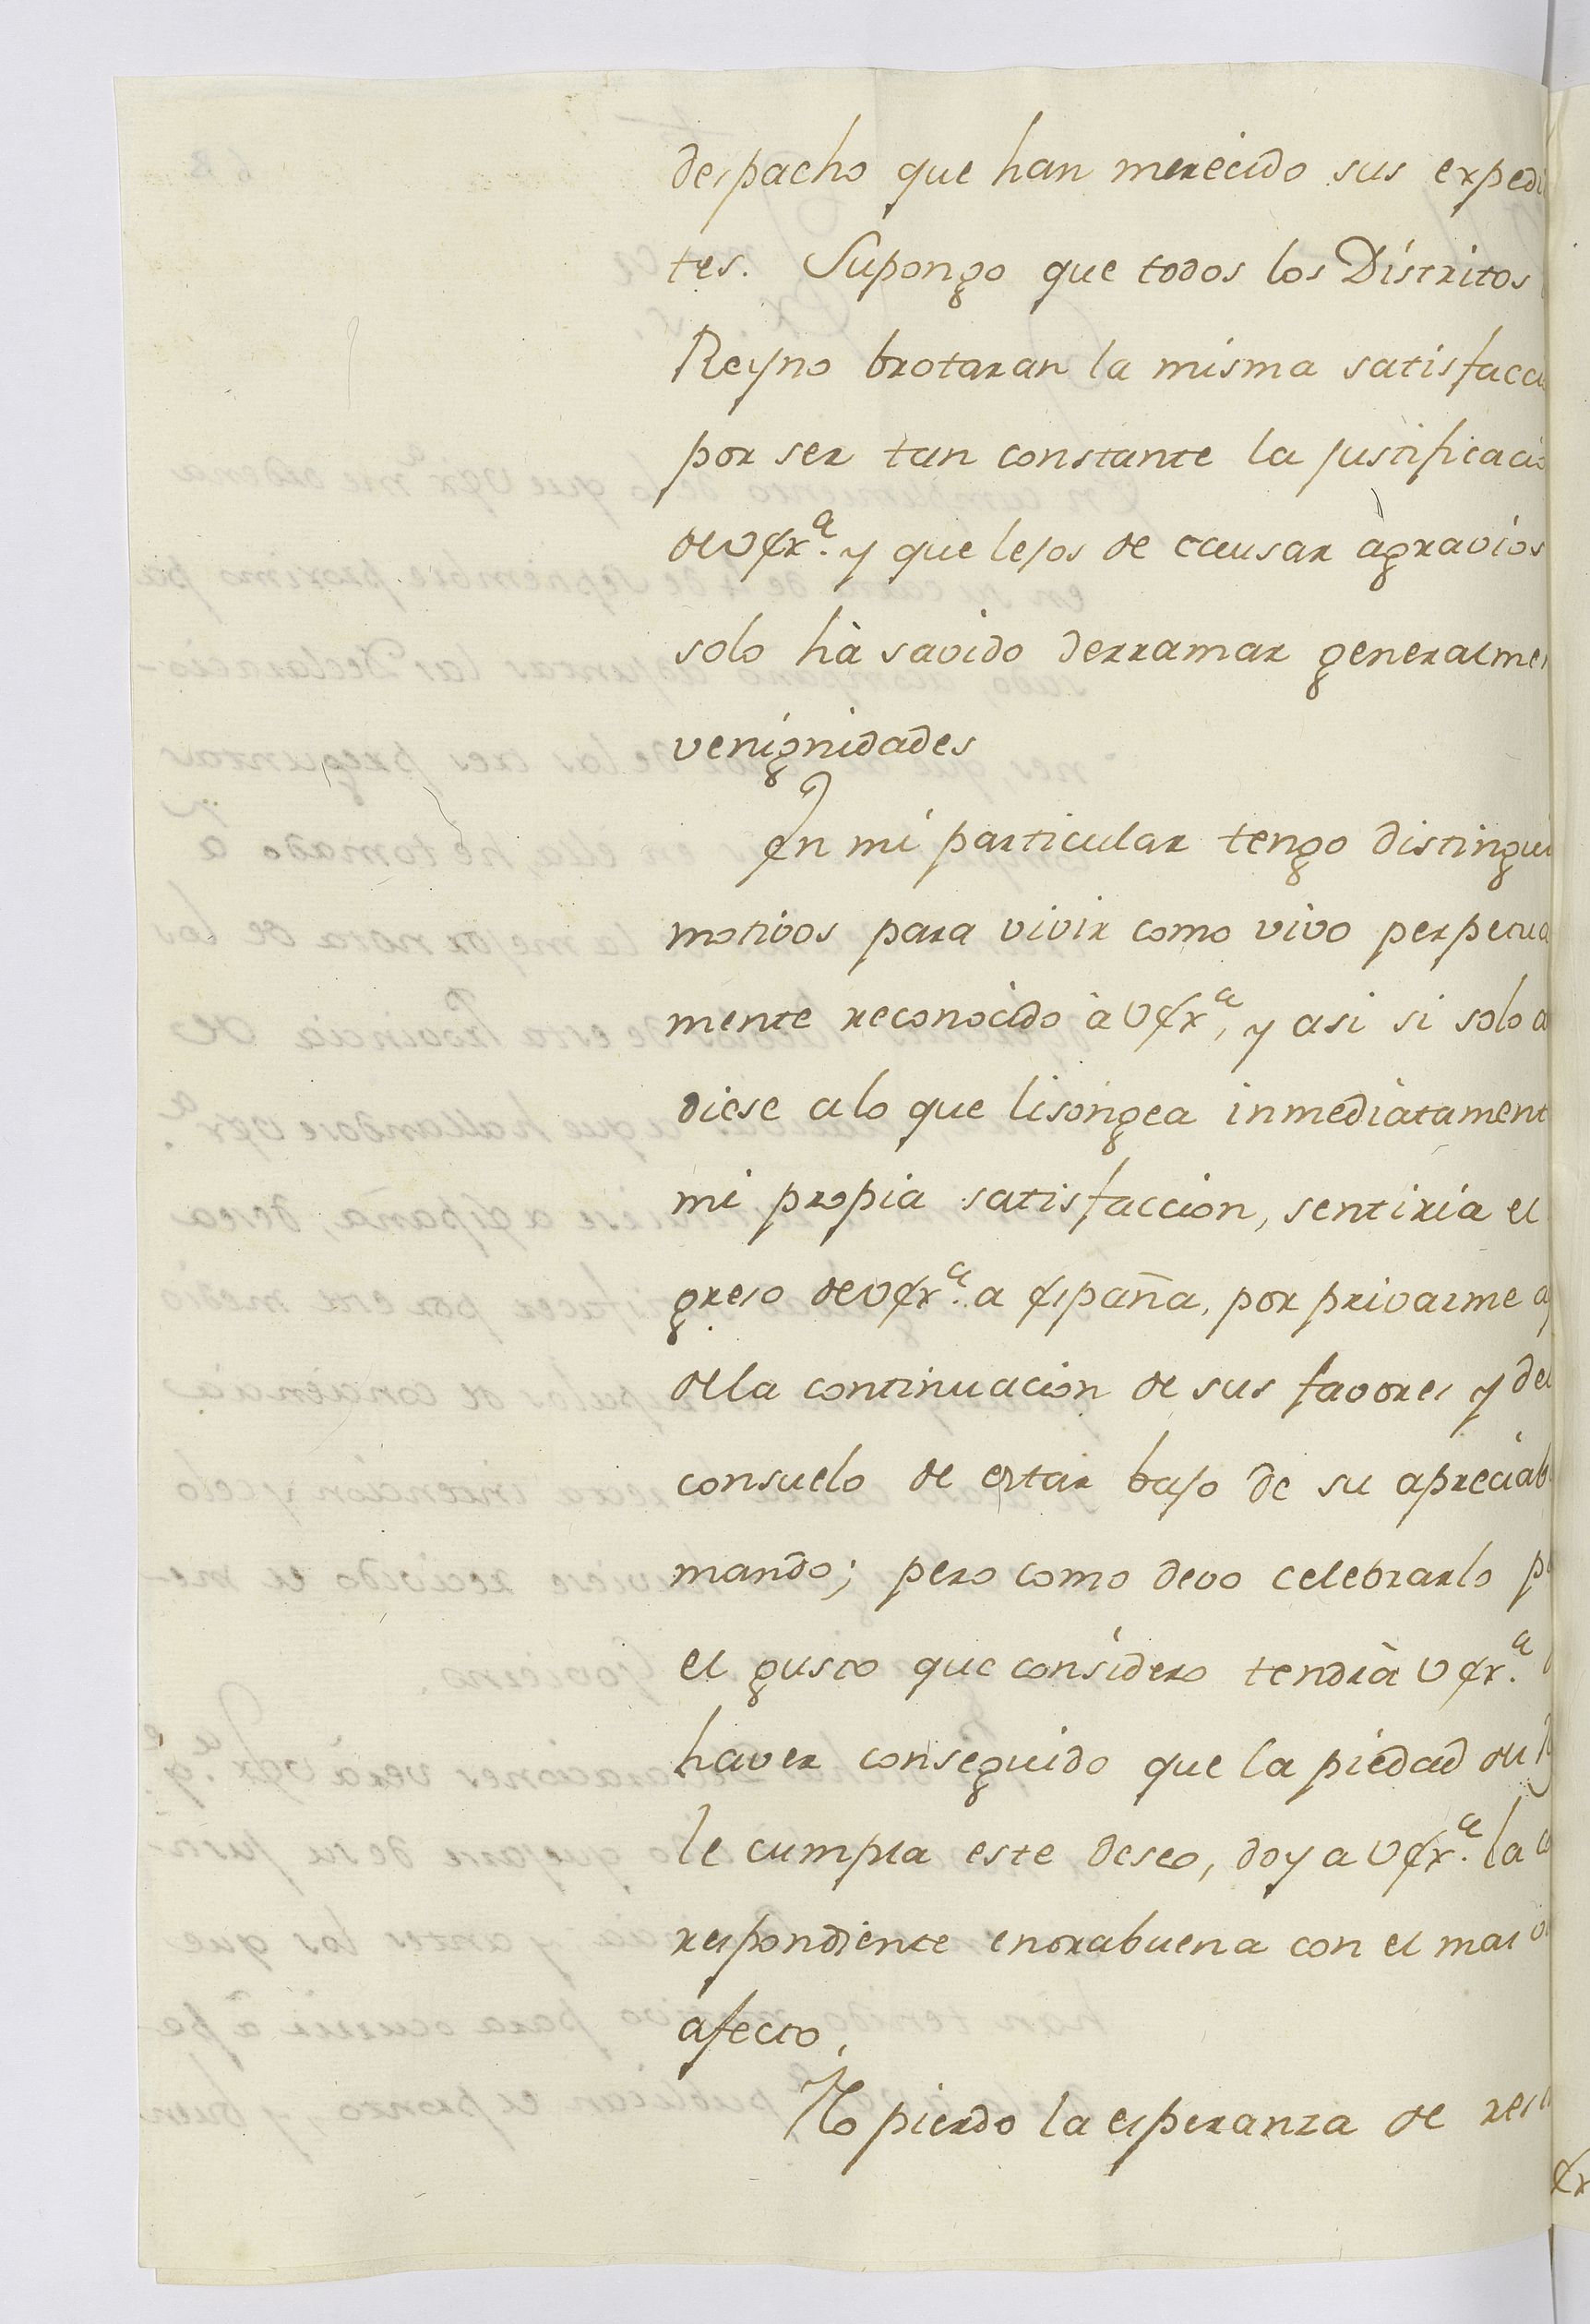 despacho que han merecido sus expedi
tes. Supongo que todos los Distritos
Reyno brotaran la misma satisfacci
por ser tan constante la justificacio
de V Ex.ª y que lejos de causar agravios
solo hà savido derramar generalme
venignidades
En mi particular tengo distingui
motivos para vivir como vivo perpetua
mente reconocido à V Exª, y asi si solo a
diese a lo que lisongea inmediatament
mi propia satisfaccion, sentiria el
greso de V Ex.ª a España, por privarme a
de la continuacion de sus favores y del
consuelo de estar bajo de su apreciab
mando; pero como devo celebrarlo p
el gusto que considero tendrà V Ex.ª
haver conseguido que la piedad del
le cumpla este deseo, doy a V Ex.ª la co
respondiente enorabuena con el maio
afecto,
No pierdo la esperanza de res